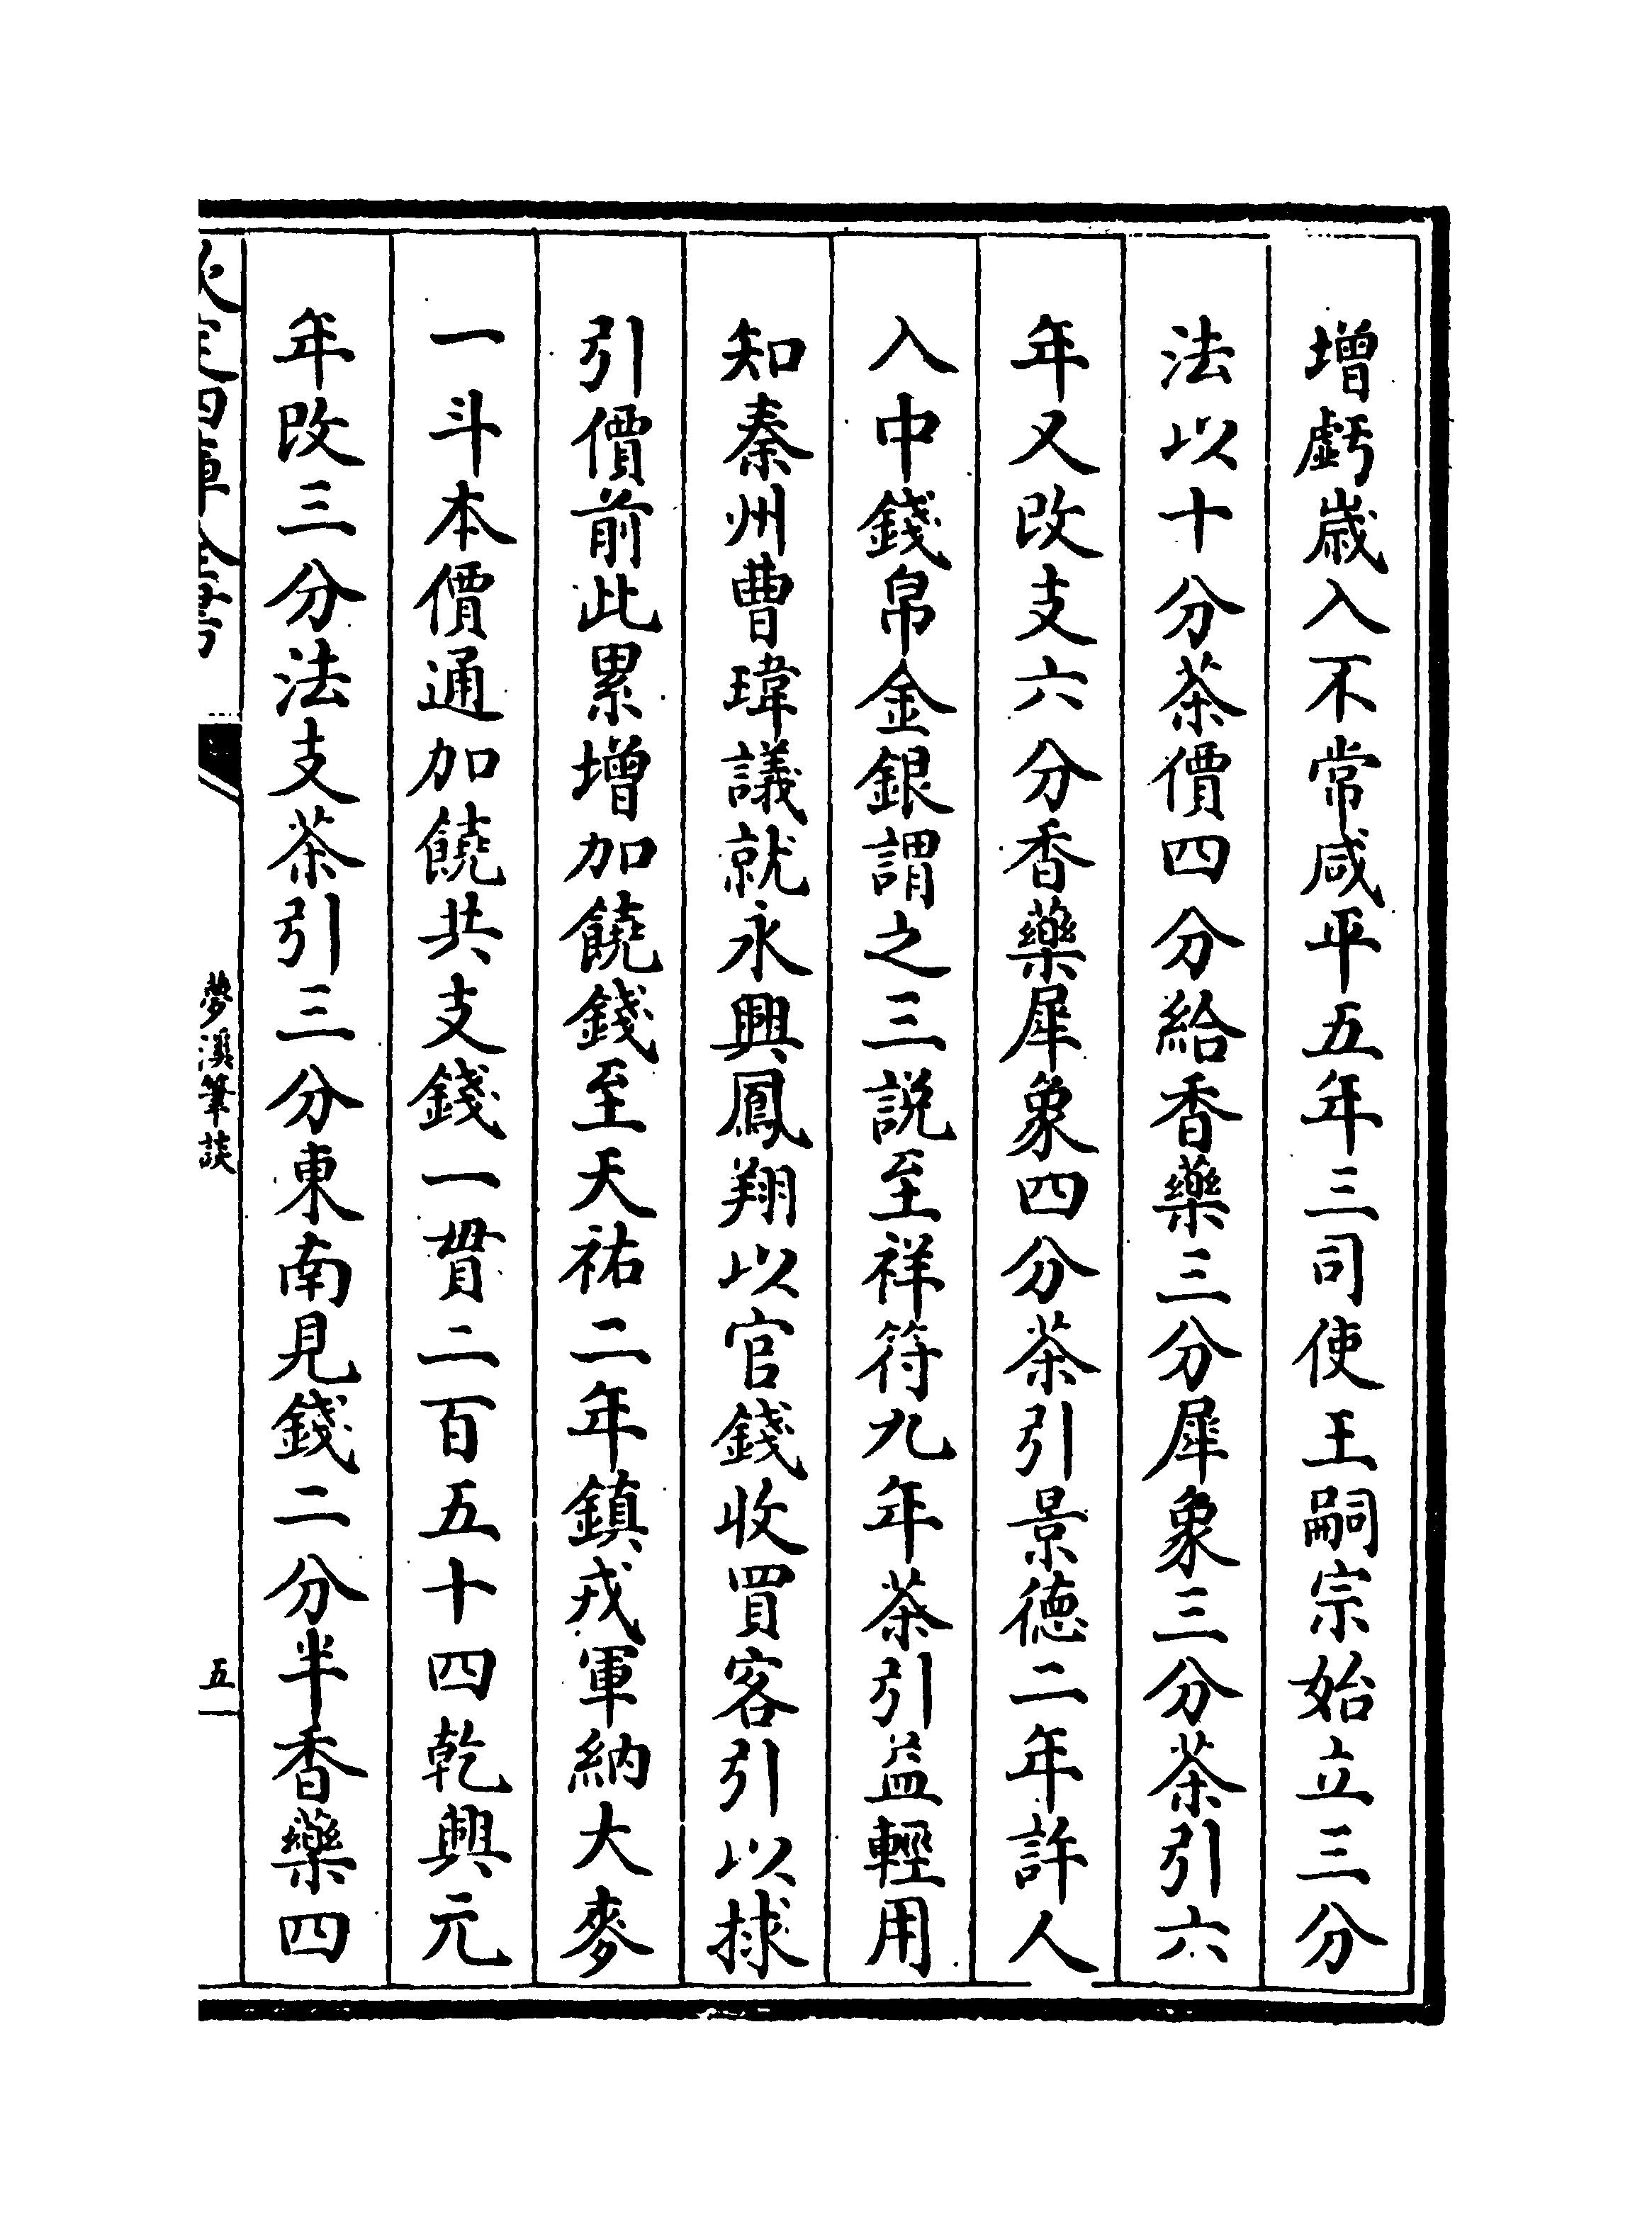 增虧歲入不常咸平五年三司使王嗣宗始立三分
法以十分茶價四分給香藥三分犀象三分茶引六
年又改支六分香藥犀象四分茶引景徳二年許人
入中錢帛金銀謂之三説至祥符九年茶引益輕用
知秦州曹瑋議就永興鳳翔以官錢收買客引以捄
引價前此累增加饒錢至天祐二年鎮戎軍納大麥
一斗本價通加饒共支錢一貫二百五十四乾興元
年改三分法支茶引三分東南見錢二分半香藥四
欽定四庫全書
夢溪筆談
五